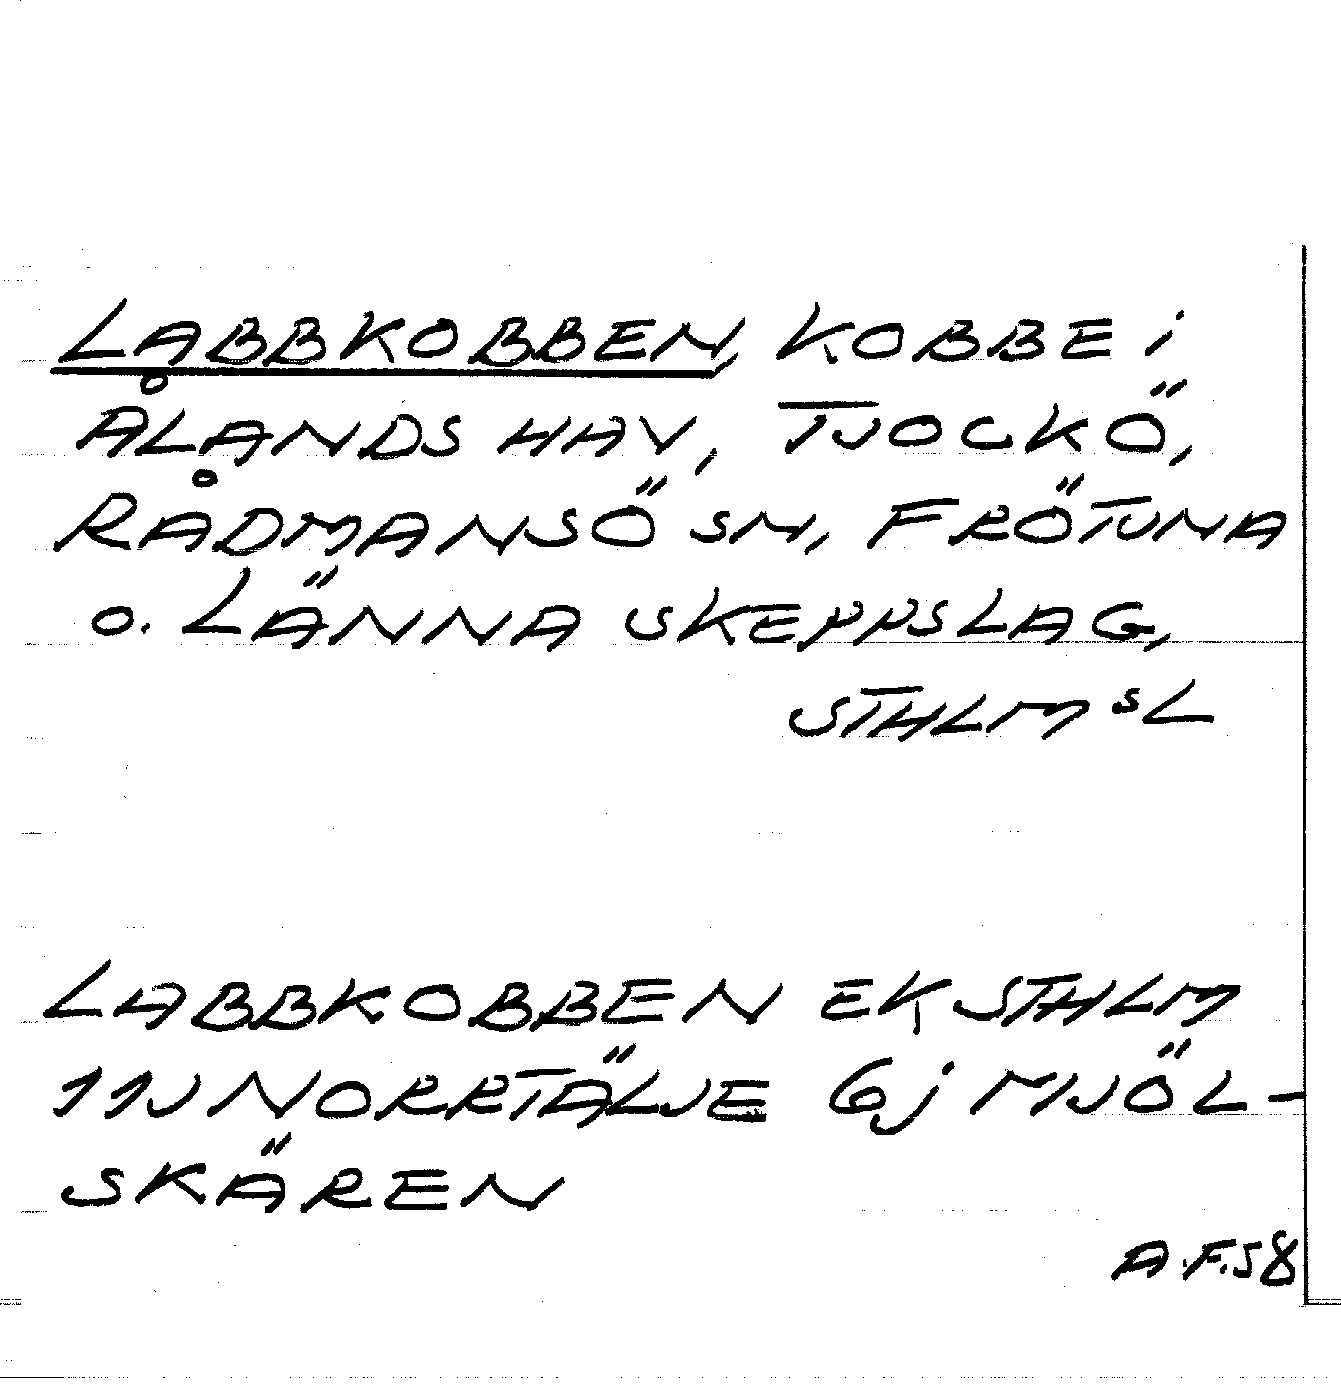 LABBKOBBEN, KOBBE i
ÅLANDS HAV, TJOCKÖ,
RÅDMANSÖ SN, FRÖTUNA
O. LÄNNA SKEPPSLAG,
STHLMsL
LABBKOBBEN EK STHLM
11J NORRTÄLJE 6j MJÖL-
SKÄREN
A.F.58